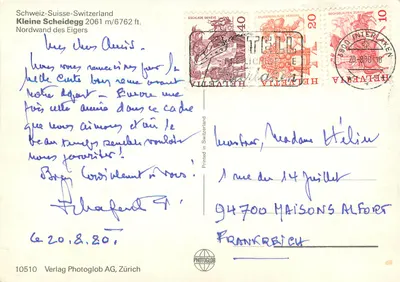 Schweiz-Suisse-Switzerland
Kleine Scheidegg 2061 m/6762 ft.
Nordwand des Eigers
Mes chers Amis.
Nous vous remercions pour la
belle carte bien reçue avant
notre départ - Encore une
fois cette année dans ce cadre
que nous aimons et où le
beau temps semble vouloir
nous favoriser!
Bien cordialement à vous!
Le 20.8.80.
10510 Verlag Photoglob AG, Zürich
Printed in Switzerland
PHOTOGLOB
40
20
10
HELVETIA
HELVETIA
HELVETIA
3800 INTERLAKEN
Monsieur, Madame Hélin
1 rue du 14 juillet
94700 MAISONS ALFORT
FRANKREICH